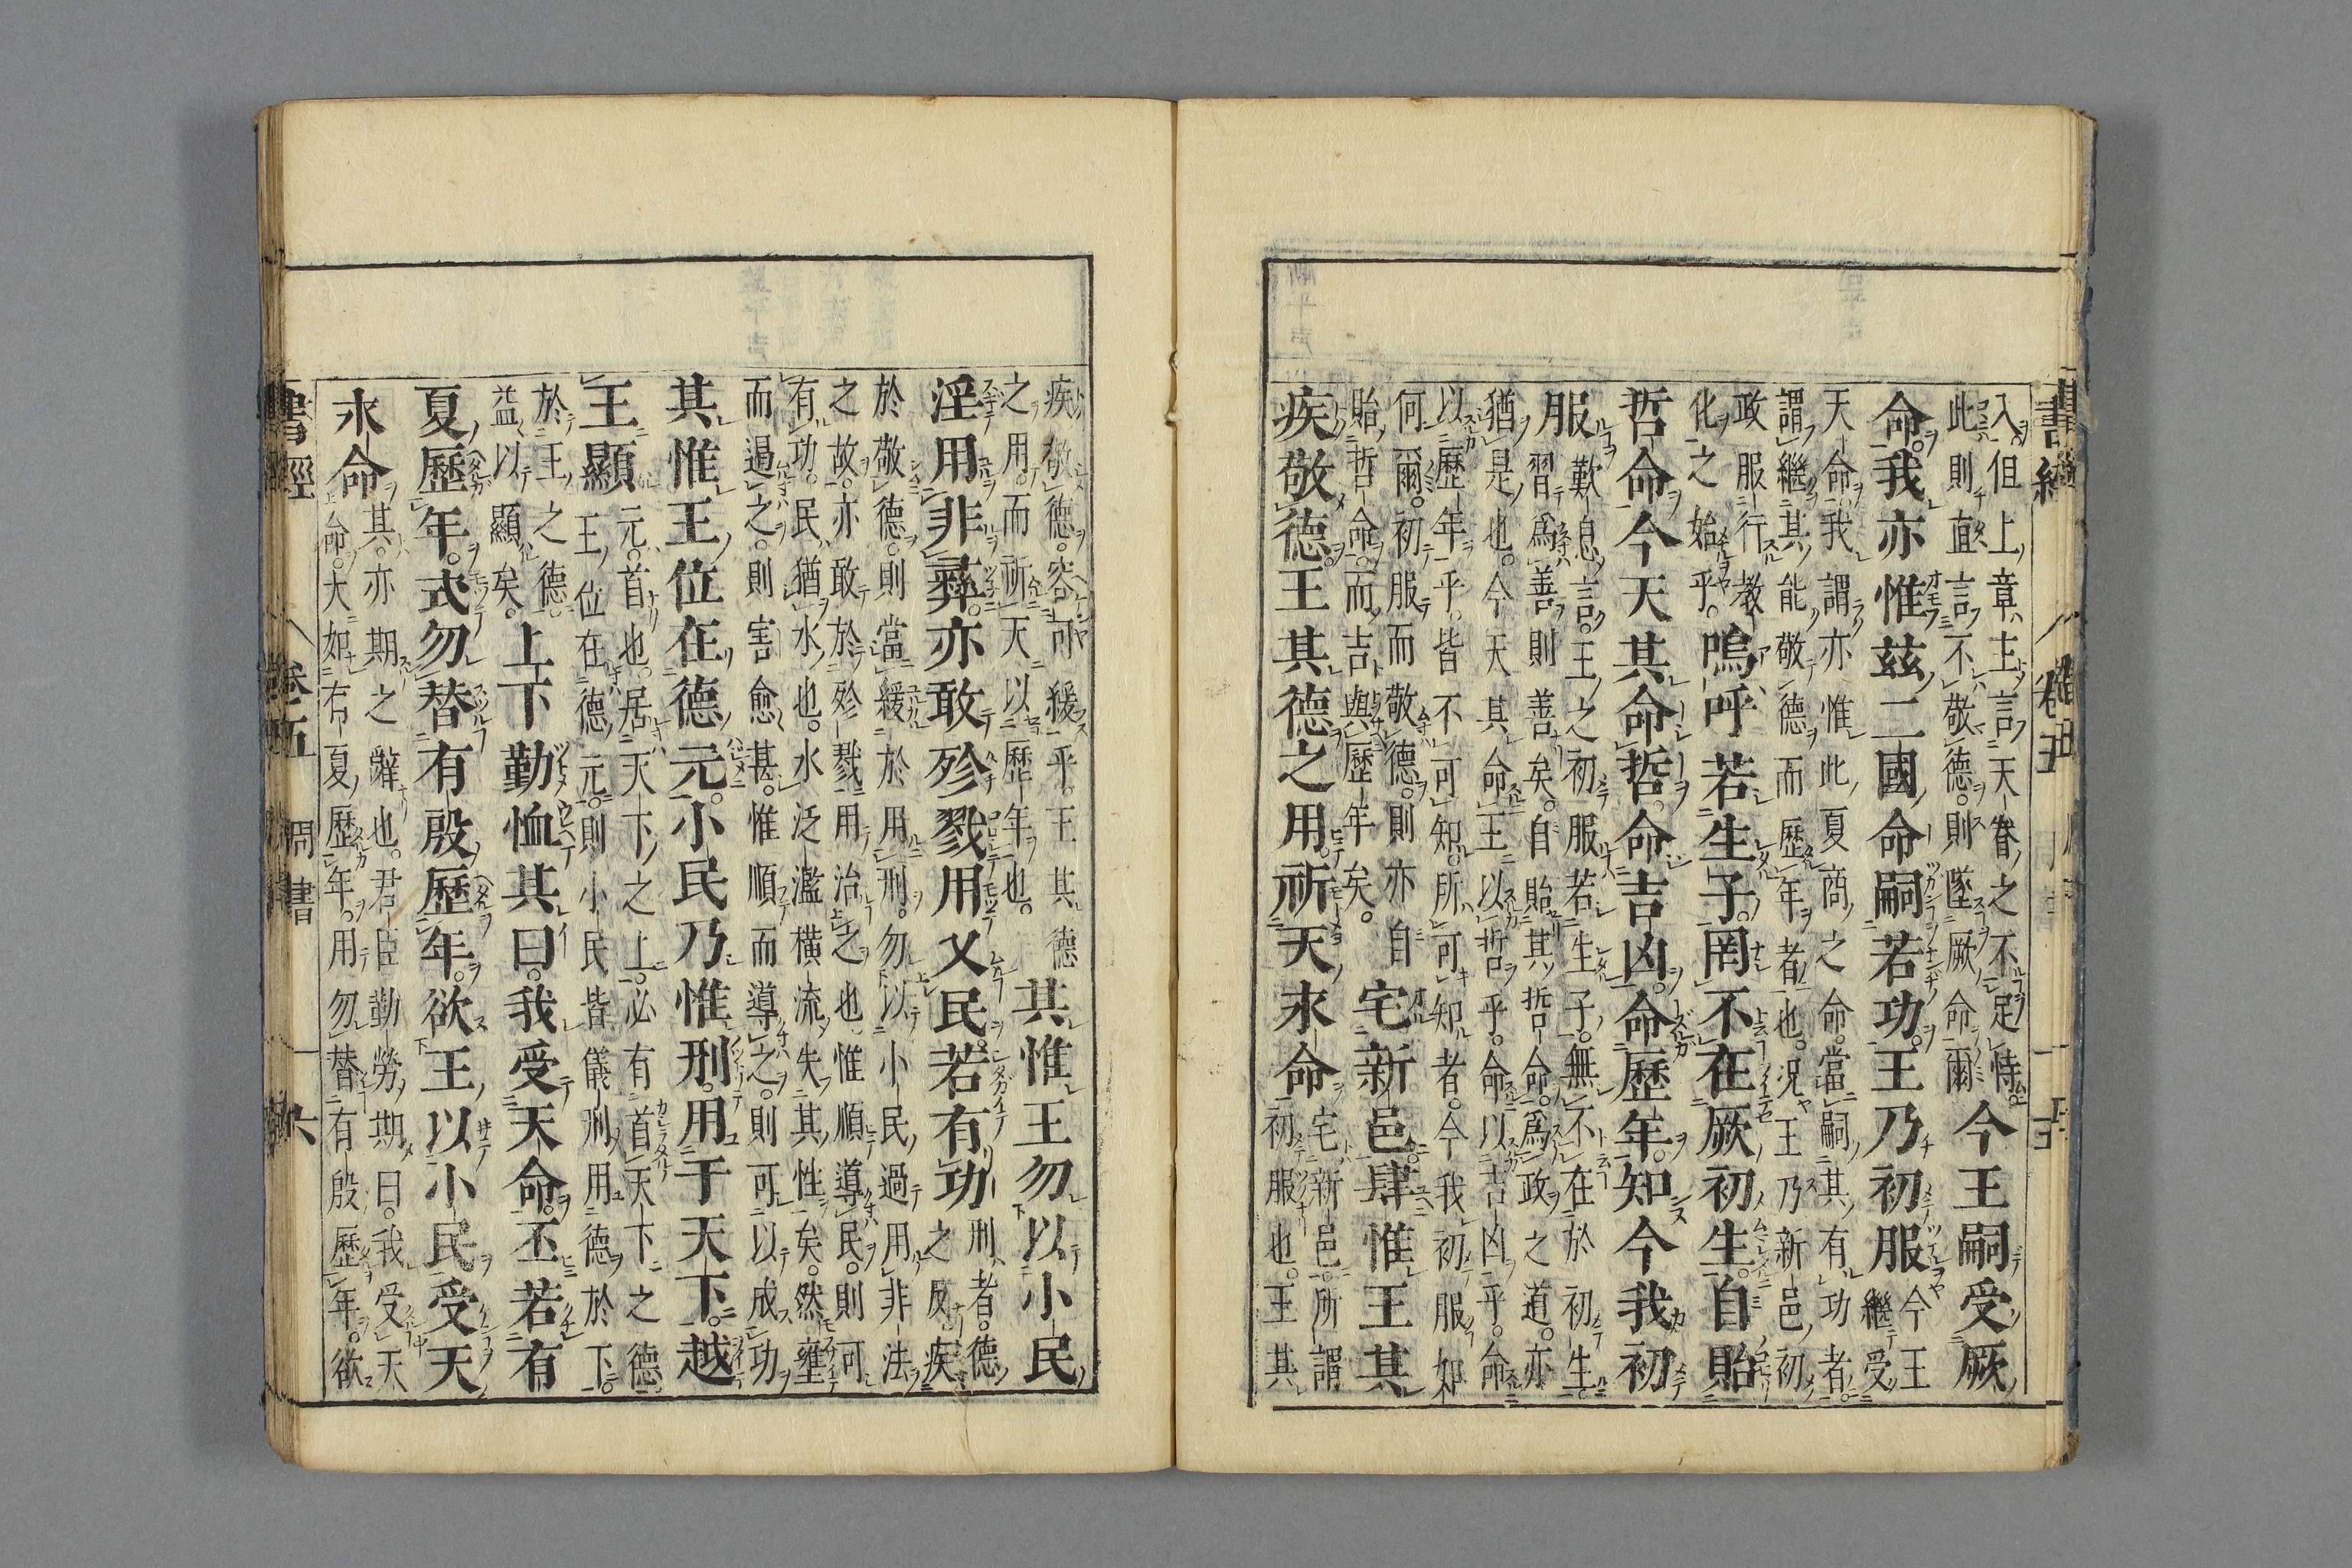 入但上章主言天眷之不足恃
此則直言不敬德則墜厥命爾今王嗣受厥
命我亦惟茲二國命嗣若功王乃初服今王
繼受
天命我謂亦惟此夏商之命當嗣其有功者
謂繼其能敬德而歷年者也況王乃新邑初
政服行教
化之始乎嗚呼若生子罔不在厥初生自貽
哲命今天其命哲命吉凶命歷年知今我初
服歎息言王之初服若生子無不在於初生
習為善則善矣自貽其哲命為政之道亦
猶是也今天其命王以哲乎命以吉凶乎命
以歷年乎皆不可知所可知者今我初服如
何爾初服而敬德則亦自
貽哲命而吉與歷年矣宅新邑肆惟王其
疾敬德王其德之用祈天永命宅新邑所謂
初服也王其
疾敬德容可緩乎王其德
之用而祈天以歷年也其惟王勿以小民
淫用非彝亦敢殄戮用乂民若有功刑者德
之反疾
於敬德則當緩於用刑勿以小民過用非法
之故亦敢於殄戮用治之也惟順導民則可
有功民猶水也水泛濫橫流失其性矣然壅
而遏之則害愈甚惟順而導之則可以成功
其惟王位在德元小民乃惟刑用于天下越
王顯元首也居天下之上必有首天下之德
王位在德元則小民皆儀刑用德於下
於王之德
益以顯矣上下勤恤其曰我受天命丕若有
夏歷年式勿替有殷歷年欲王以小民受天
永命其亦期之辭也君臣勤勞期曰我受天
命大如有夏歷年用勿替有殷歷年欲
書經
卷五
周書
六